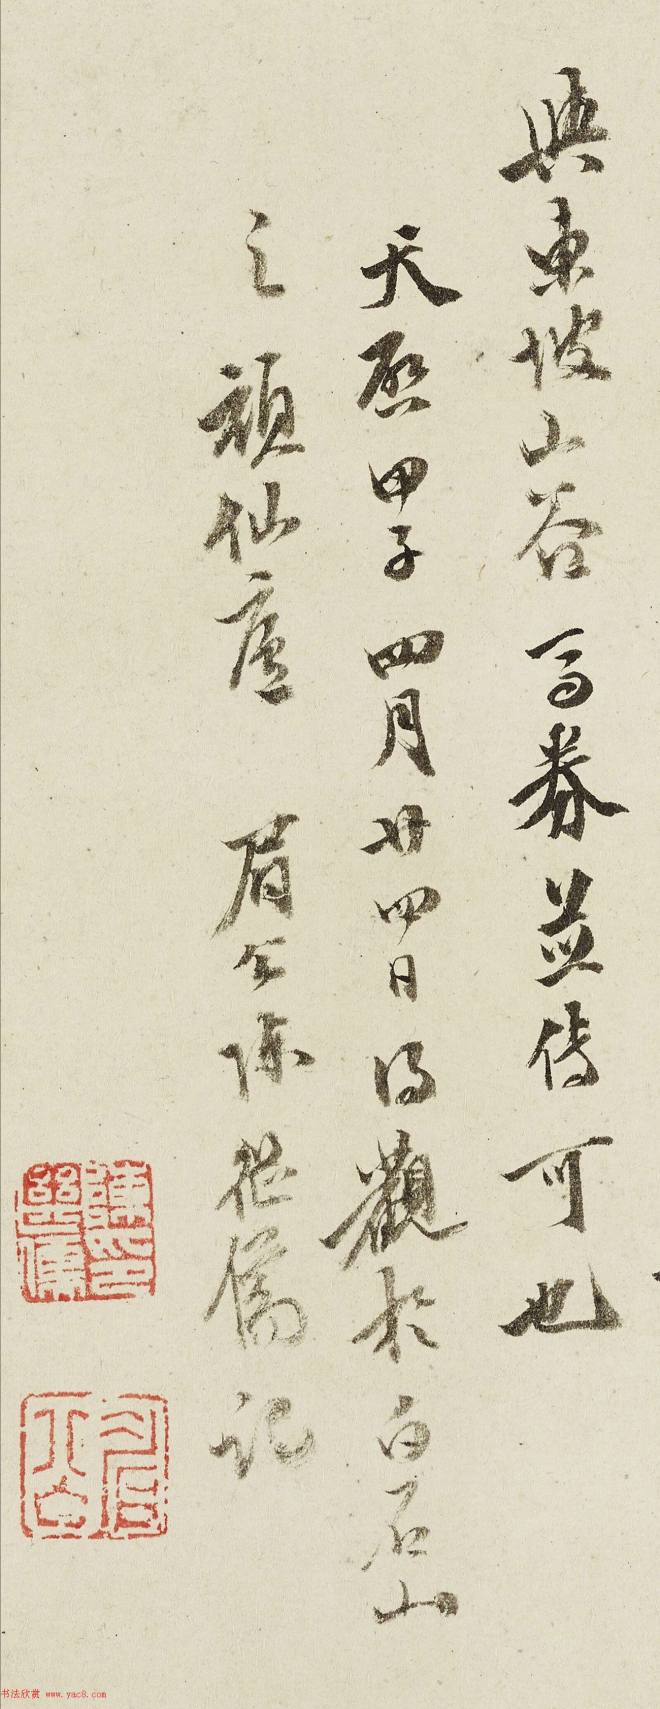 與東坡山谷馬券並傳可也
天啓甲子四月廿四日得觀於白石山
之頑仙廬 眉公陳繼儒記
陳印繼儒
书法欣赏 www.yac8.com